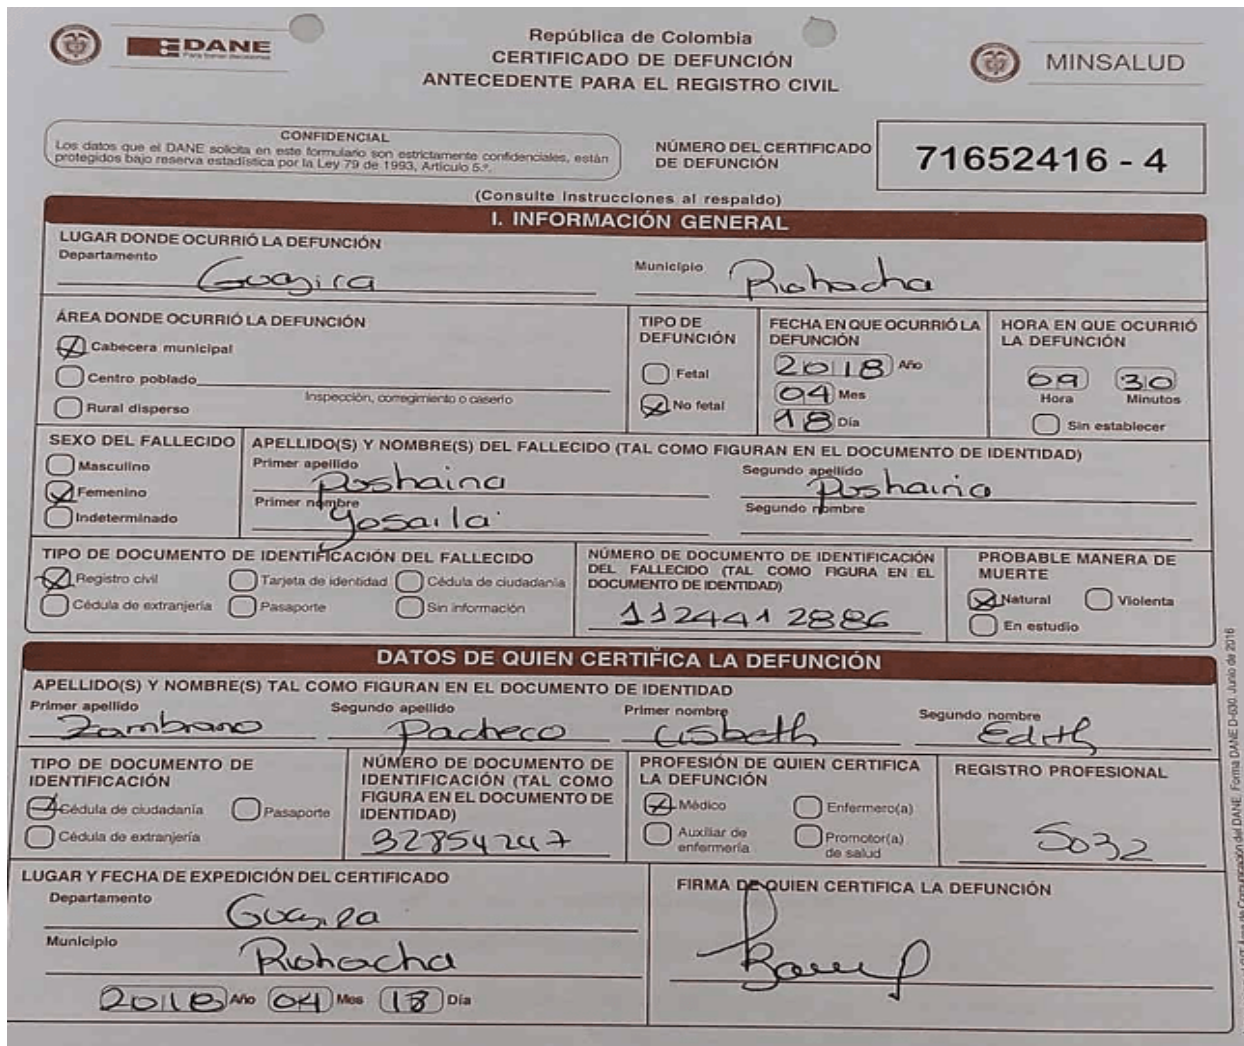 DANE
Para tomar decisiones
República de Colombia
CERTIFICADO DE DEFUNCIÓN
ANTECEDENTE PARA EL REGISTRO CIVIL
MINSALUD
CONFIDENCIAL
Los datos que el DANE solicita en este formulario son estrictamente confidenciales, están
protegidos bajo reserva estadística por la Ley 79 de 1993, Artículo 5.º.
NÚMERO DEL CERTIFICADO
DE DEFUNCIÓN
71652416 - 4
(Consulte Instrucciones al respaldo)
I. INFORMACIÓN GENERAL
LUGAR DONDE OCURRIÓ LA DEFUNCIÓN
Departamento Guajira Municipio Riohacha
ÁREA DONDE OCURRIÓ LA DEFUNCIÓN
Cabecera municipal
Centro poblado
Inspección, corregimiento o caserío
Rural disperso
TIPO DE
DEFUNCIÓN
Fetal
No fetal
FECHA EN QUE OCURRIÓ LA
DEFUNCIÓN
2018 Año
04 Mes
18 Día
HORA EN QUE OCURRIÓ
LA DEFUNCIÓN
09 30
Hora Minutos
Sin establecer
SEXO DEL FALLECIDO
Masculino
Femenino
Indeterminado
APELLIDO(S) Y NOMBRE(S) DEL FALLECIDO (TAL COMO FIGURAN EN EL DOCUMENTO DE IDENTIDAD)
Primer apellido Segundo apellido
Pushaina Pushaina
Primer nombre Segundo nombre
Yosaila
TIPO DE DOCUMENTO DE IDENTIFICACIÓN DEL FALLECIDO
Registro civil Tarjeta de identidad Cédula de ciudadanía
Cédula de extranjería Pasaporte Sin información
NÚMERO DE DOCUMENTO DE IDENTIFICACIÓN
DEL FALLECIDO (TAL COMO FIGURA EN EL
DOCUMENTO DE IDENTIDAD)
1124412886
PROBABLE MANERA DE
MUERTE
Natural Violenta
En estudio
DATOS DE QUIEN CERTIFICA LA DEFUNCIÓN
APELLIDO(S) Y NOMBRE(S) TAL COMO FIGURAN EN EL DOCUMENTO DE IDENTIDAD
Primer apellido Segundo apellido Primer nombre Segundo nombre
Zambrano Pacheco Lisbeth Edith
TIPO DE DOCUMENTO DE
IDENTIFICACIÓN
Cédula de ciudadanía Pasaporte
Cédula de extranjería
NÚMERO DE DOCUMENTO DE
IDENTIFICACIÓN (TAL COMO
FIGURA EN EL DOCUMENTO DE
IDENTIDAD)
32854247
PROFESIÓN DE QUIEN CERTIFICA
LA DEFUNCIÓN
Médico Enfermero(a)
Auxiliar de
enfermería
Promotor(a)
de salud
REGISTRO PROFESIONAL
5032
LUGAR Y FECHA DE EXPEDICIÓN DEL CERTIFICADO
Departamento Guajira
Municipio Riohacha
2018 Año 04 Mes 18 Día
FIRMA DE QUIEN CERTIFICA LA DEFUNCIÓN
Área de Comunicación del DANE. Forma DANE D-630. Junio de 2016